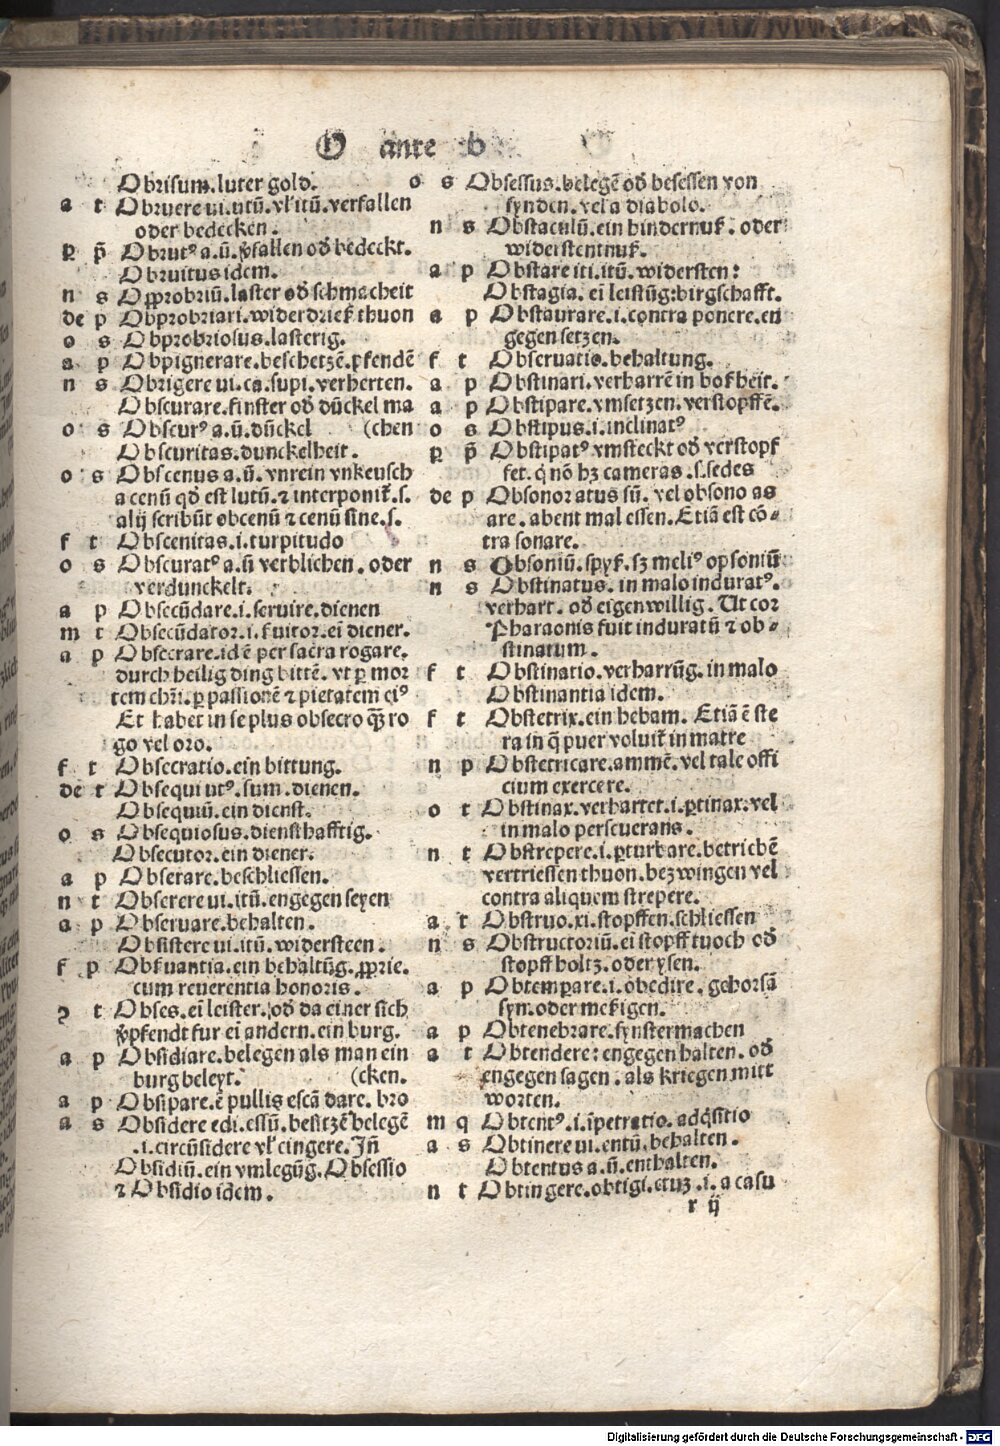 O ante b
Obrisum.luter gold.
a t Obruere ui.utū.vl'itū.verfallen
oder bedecken.
p p̄ Obrutꝰ a.ū.ꝟfallen od̄ bedeckt.
Obruitus idem.
n s Opprobriū.laster od̄ schmacheit
de p Obprobriari.widerdrieß thuon
o s Obprobriosus.lasterig.
a p Obpignerare.beschetzē.pfendē
n s Obrigere ui.ca.supi.verherten.
Obscurare.finster od̄ dūckel ma
o s Obscurꝰ a.ū.dūckel (chen
Obscuritas.dunckelheit.
o s Obscenus a.ū.vnrein vnkeusch
a cenū qd̄ est lutū.⁊ interponit̄.s.
alij scribūt obcenū ⁊ cenū sine.s.
f t Obscenitas.i.turpitudo
o s Obscuratꝰ a.ū verblichen.oder
verdunckelt.
a p Obsecūdare.i.seruire.dienen
m t Obsecūdator.i.ſuitor.ei diener.
a p Obsecrare.id ē per sacra rogare.
durch heilig ding bittē.vt ꝑ mor
tem chr̄i.ꝑ passionē ⁊ pietatem eiꝰ
Et habet in se plus obsecro qꝫ ro
go vel oro.
f t Obsecratio.ein bittung.
de t Obsequi utꝰ.sum.dienen.
Obsequiū.ein dienst.
o s Obsequiosus.diensthafftig.
Obsecutor.ein diener.
a p Obserare.beschliessen.
n t Obserere ui.itū.engegen seyen
a p Obseruare.behalten.
Obsistere ui.itū.widersteen.
f p Obſuantia.ein behaltūg.ꝓprie.
cum reuerentia honoris.
ꝯ t Obses.ei leister.od̄ da einer sich
ꝟpfendt fur ei andern.ein burg.
a p Obsidiare.belegen als man ein
burg beleyt. (cken.
a p Obsipare.ē pullis escā dare.bro
a s Obsidere edi.essū.besitzē belegē
.i.circūsidere vl' cingere.Jn̄
Obsidiū.ein vmlegūg.Obsessio
⁊ Obsidio idem.
o s Obsessus.belegē od̄ besessen von
synden.vel a diabolo.
n s Obstaculū.ein hindernuß.oder
widerstentnuß.
a p Obstare iti.itū.widersten:
Obstagia.ei leistūg:birgschafft.
a p Obstaurare.i.contra ponere.en
gegen setzen.
f t Obseruatio.behaltung.
a p Obstinari.verharrē in boßheit.
a p Obstipare.vmsetzen.verstopffē.
o s Obstipus.i.inclinatꝰ
p p̄ Obstipatꝰ vmsteckt od̄ verstopf
fet.q̇ nō hꝫ cameras.s.sedes
de p Obsonor atus sū.vel obsono as
are.abent mal essen.Etiā est cō⸗
tra sonare.
n s Obsoniū.spyß.sꝫ meliꝰ opsoniū
n s Obstinatus.in malo induratꝰ.
verhart.od̄ eigenwillig.Ut cor
Pharaonis fuit induratū ⁊ ob⸗
stinatum.
f t Obstinatio.verharrūg.in malo
Obstinantia idem.
f t Obstetrix.ein hebam.Etiā ē ste
ra in q̄ puer voluit̄ in matre
n p Obstetricare.ammē.vel tale offi
cium exercere.
o t Obstinax.verhartet.i.ꝑtinax.vel
in malo perseuerans.
n t Obstrepere.i.ꝑturbare.betriebē
vertriessen thuon.bezwingen vel
contra aliquem strepere.
a t Obstruo.xi.stopffen.schliessen
n s Obstructoriū.ei stopff tuoch od̄
stopff holtz.oder ysen.
a p Obtemꝑare.i.obedire.gehorsā
syn.oder meßigen.
a p Obtenebrare.fynster machen
a t Obtendere:engegen halten.od̄
engegen sagen.als kriegen mitt
worten.
m q Obtentꝰ.i.īpetratio.adq̇sitio
a s Obtinere ui.entū.behalten.
Obtentus a.ū.enthalten.
n t Obtingere.obtigi.ctuꝫ.i.a casu
r ij
Digitalisierung gefördert durch die Deutsche Forschungsgemeinschaft - DFG